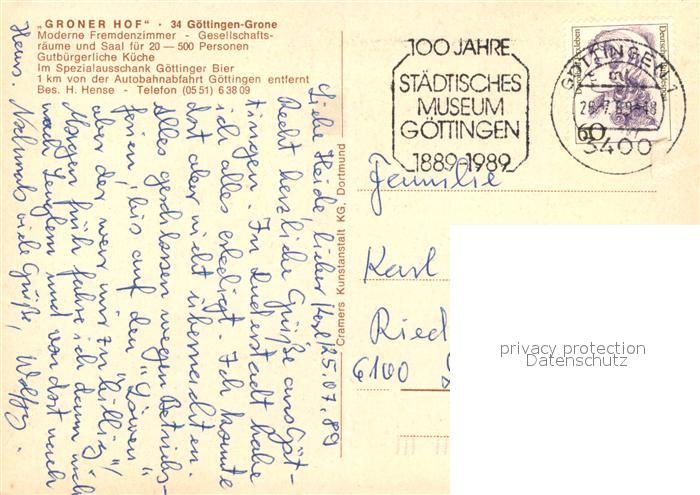 „GRONER HOF" · 34 Göttingen-Grone
Moderne Fremdenzimmer - Gesellschafts-
räume und Saal für 20 — 500 Personen
Gutbürgerliche Küche
Im Spezialausschank Göttinger Bier
1 km von der Autobahnabfahrt Göttingen entfernt
Bes. H. Hense - Telefon (05 51) 6 38 09
25.07.89
Liebe Heide, lieber Karl
Recht herzliche Grüße aus Göt-
tingen. In Duderstadt habe
ich alles erledigt. Ich konnte
dort aber nicht übernachten.
Alles geschlossen wegen Betriebs-
ferien, bis auf den "Löwen"
aber der war mir zu "billig"!
Morgen früh fahre ich dann
nach Lenglern und von dort nach
Haus.
Nochmals viele Grüße,
Cramers Kunstanstalt KG, Dortmund
100 JAHRE
STÄDTISCHES
MUSEUM
GÖTTINGEN
1889-1989
Deutsche Bundespost
60
GÖTTINGEN 1
3400
Familie
Karl
Ried
6100
privacy protection
Datenschutz